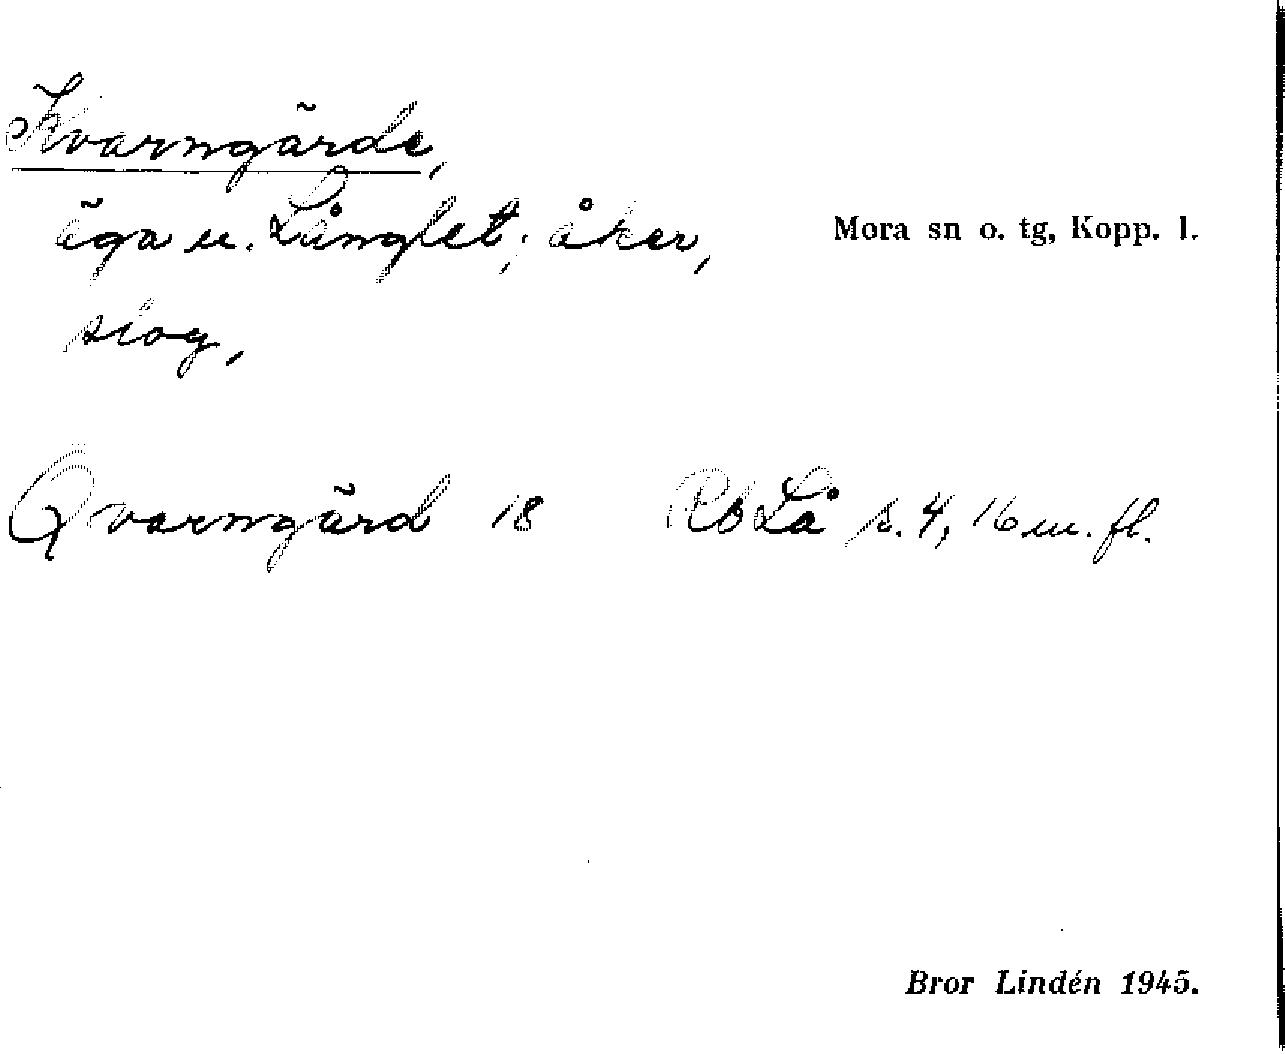 Kvarngärde,
äga u. Långlet; åker,
slog,
Mora sn o. tg, Kopp. l.
Qvarngärd 18 Rb Lå s. 4, 16 m. fl.
Bror Lindén 1945.